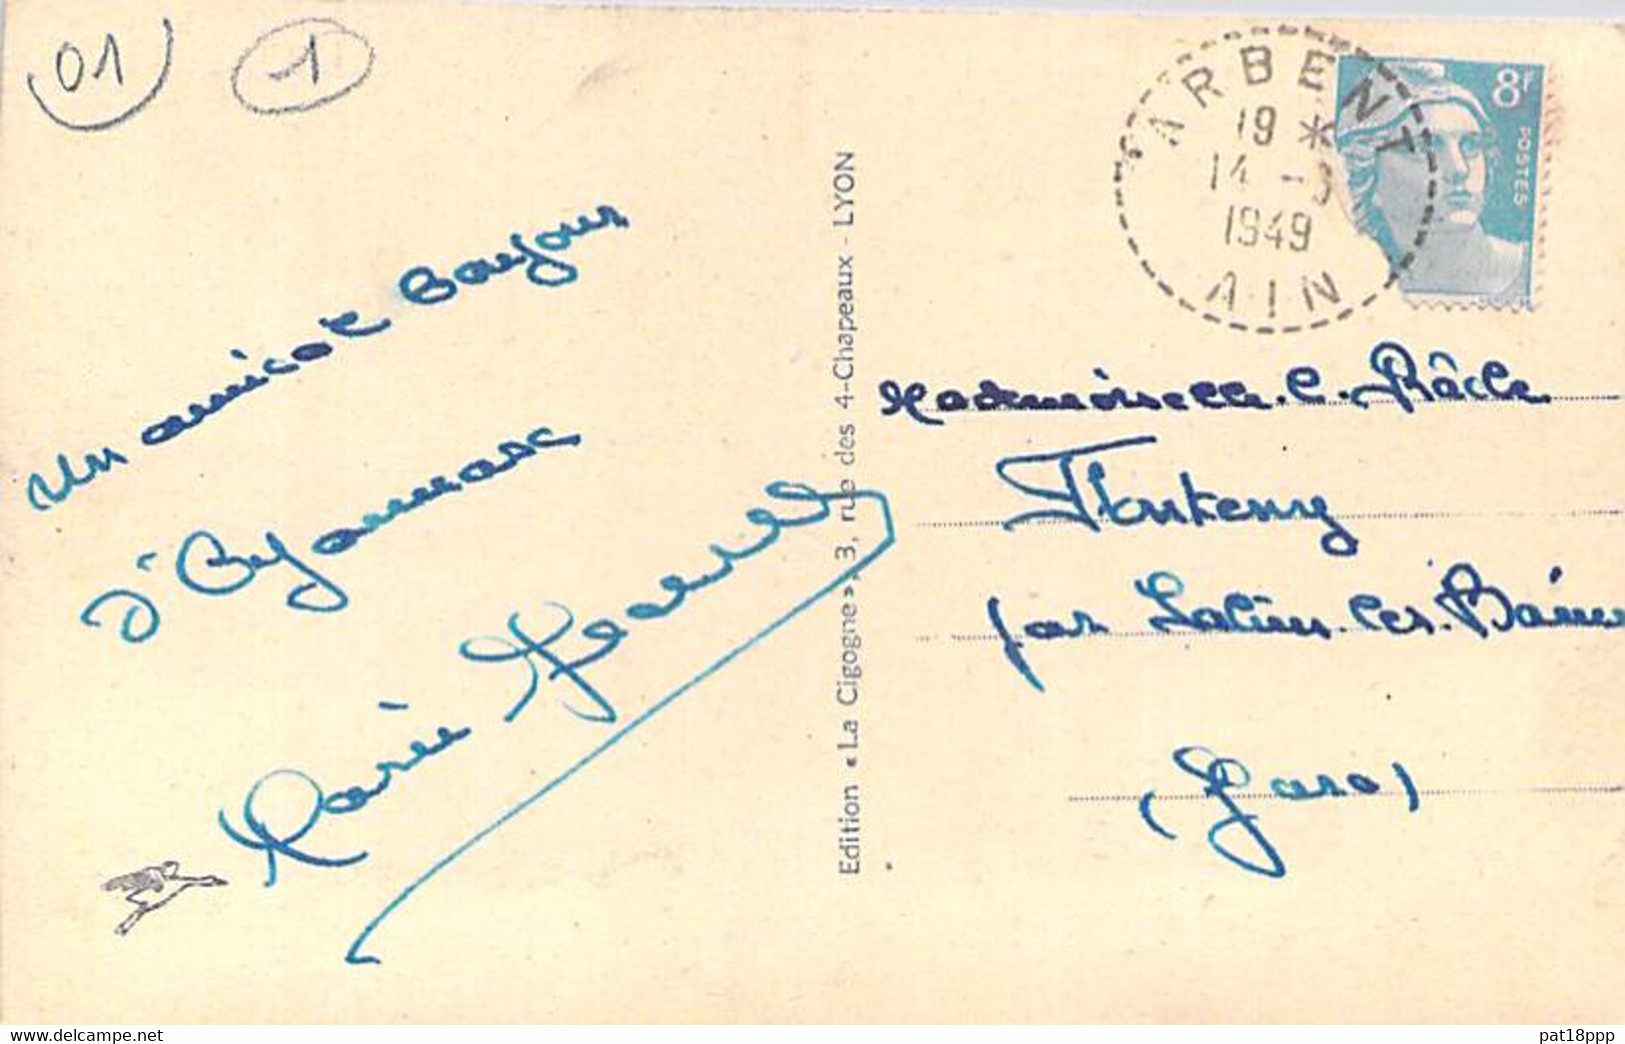 01
1
Un amical Bonjour
d'Oyonnax
Marie
Edition « La Cigogne » 3, rue des 4-Chapeaux - LYON
ARBENT
19 *
14 -
1949
AIN
8F
POSTES
Mademoiselle. C. Râcle
Fonteny
par Salins. les. Bains
Jura
www.delcampe.net
pat18ppp